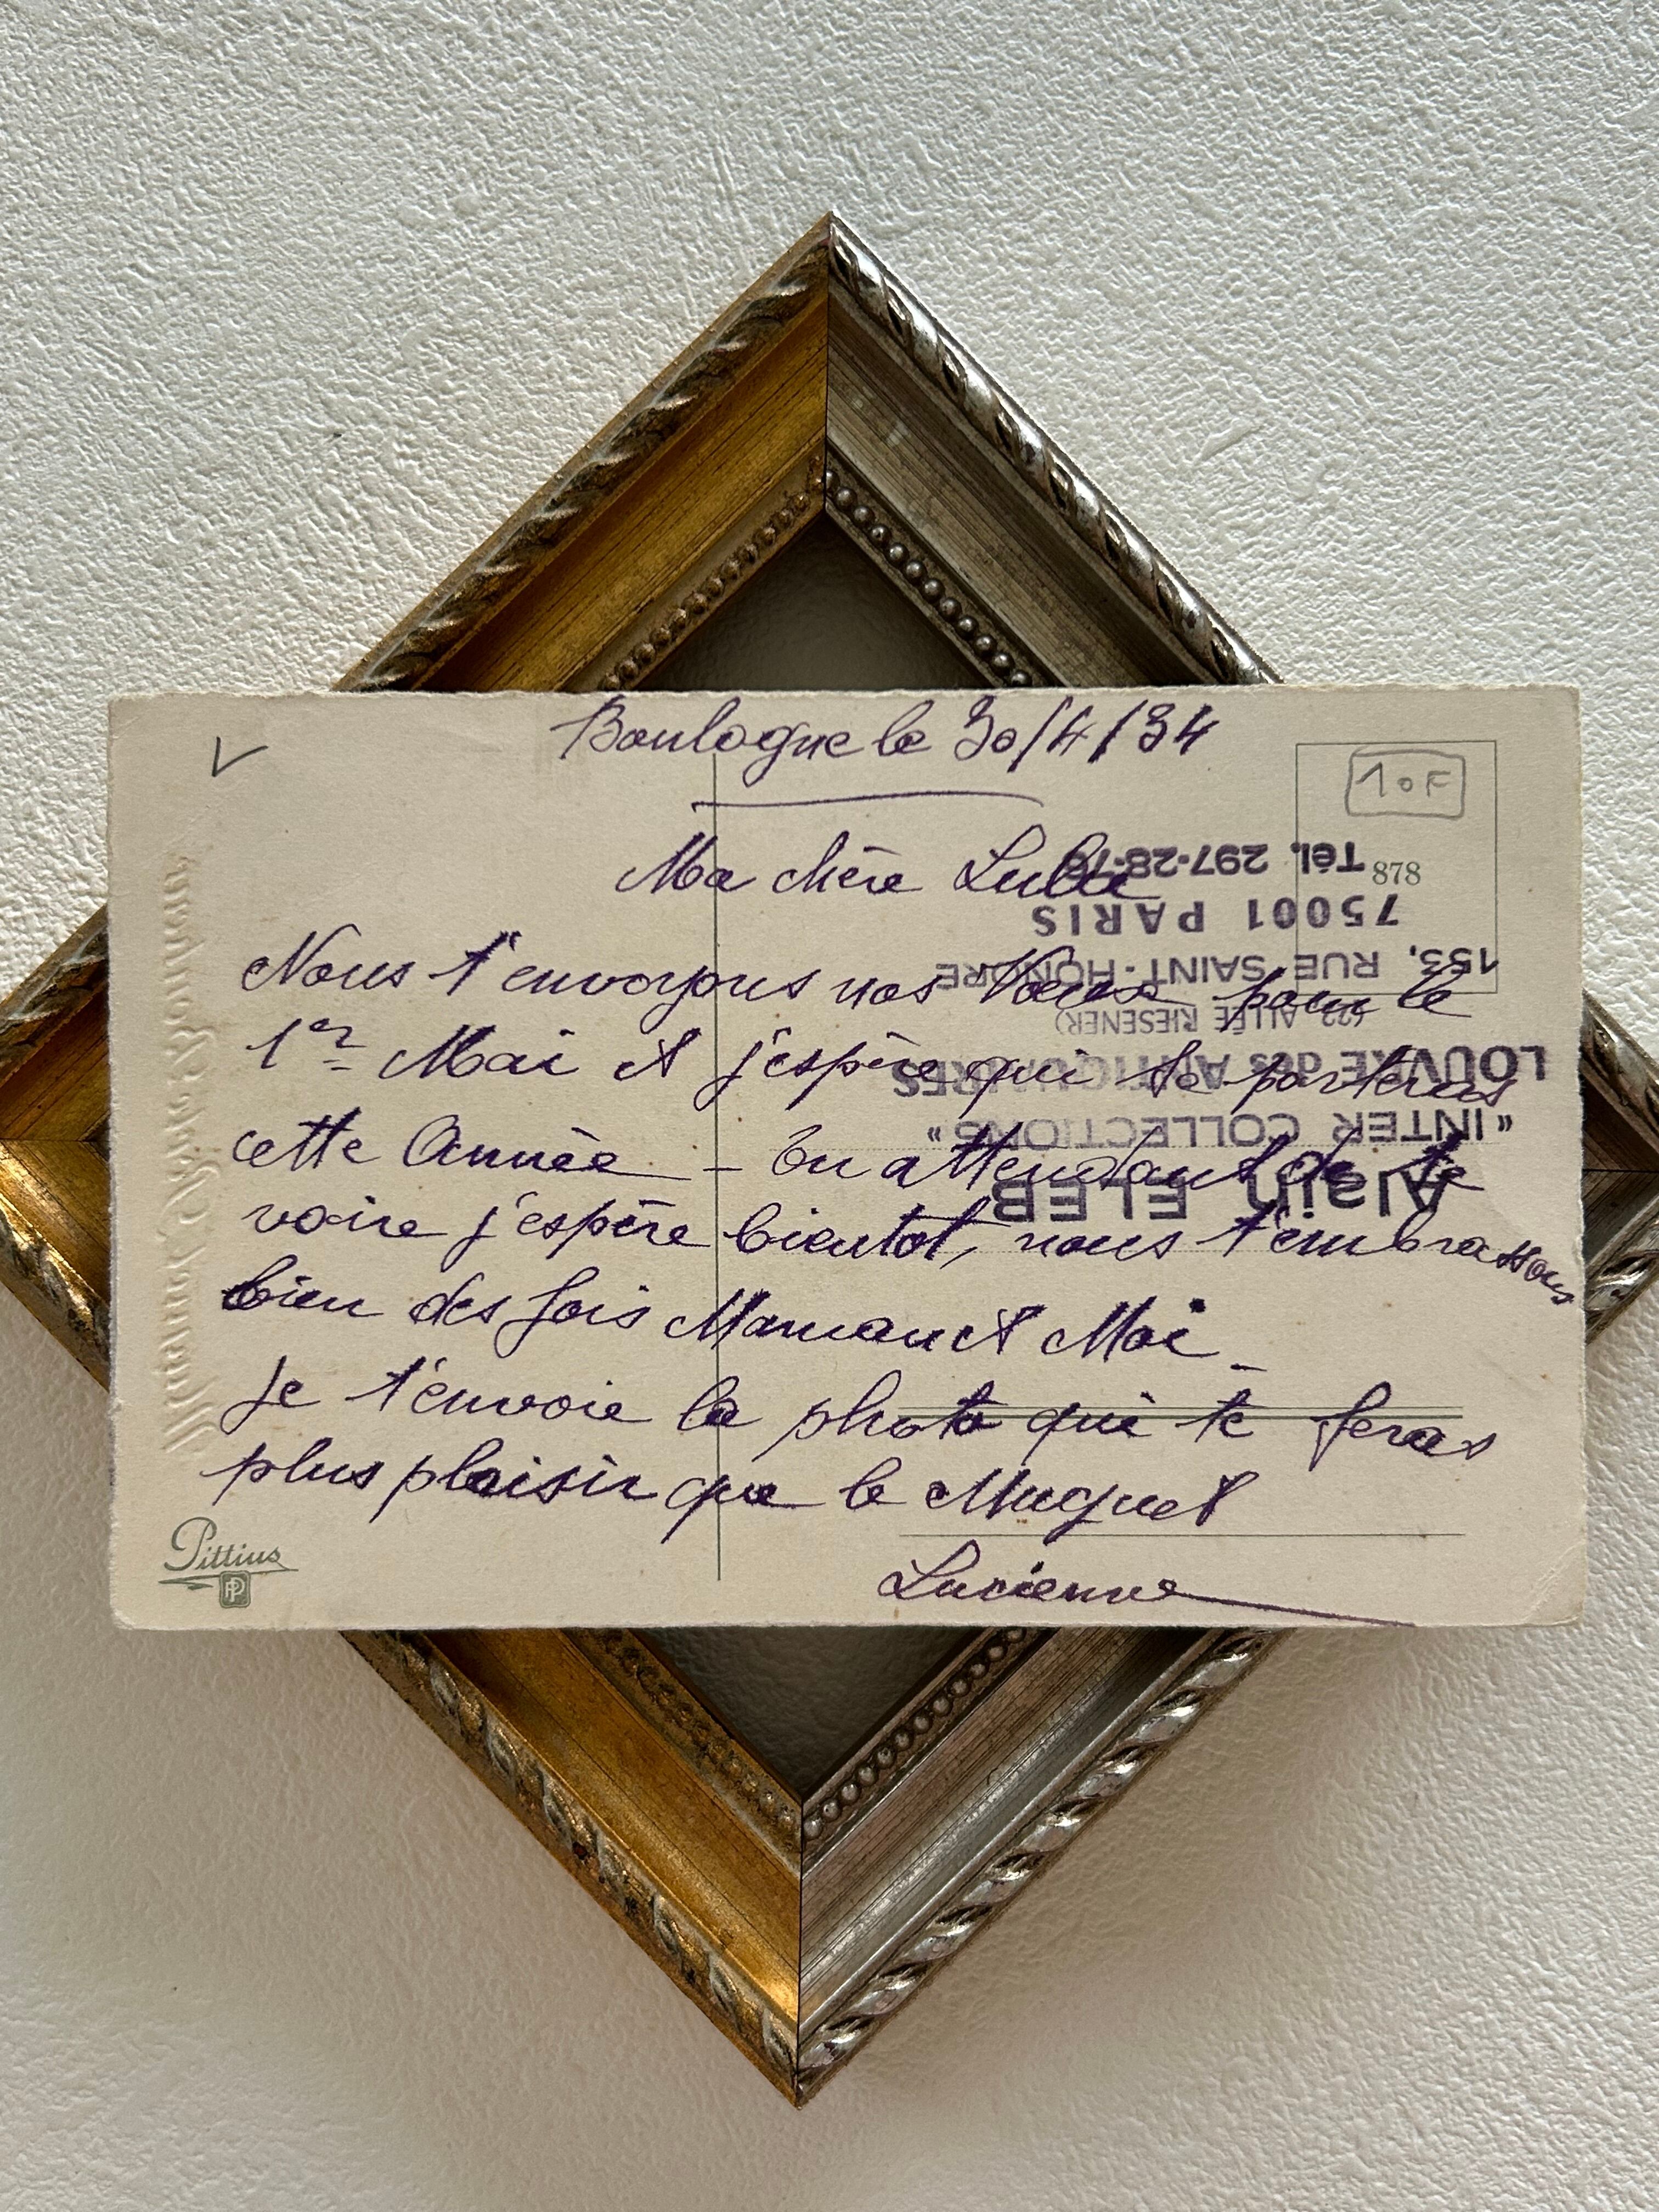 Boulogne le 30/4/34
10F
Ma chère Lulu
878
Nous t'envoyons nos Voeux pour le
1er Mai et j'espère qui te porteras
cette Année – En attendant de te
voire j'espère bientot, nous t'embrassons
bien des fois Maman et Moi –
je t'envoie la photo qui te feras
plus plaisir que le Muguet
Lucienne
Pittius
PP
Alain ELEB
"INTER COLLECTIONS"
LOUVRE des ANTIQUAIRES
(22 ALLÉE RIESENER)
153, RUE SAINT-HONORE
75001 PARIS
Tél. 297-28-76